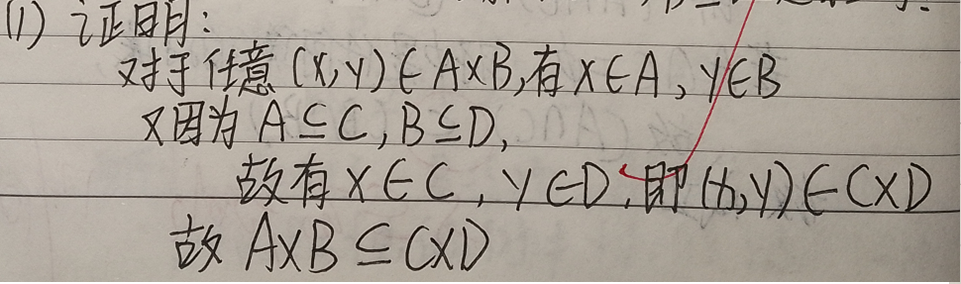 (1) 证明:
对于任意 (x,y)∈A×B,有 x∈A, y∈B
又因为 A⊆C, B⊆D,
故有 x∈C, y∈D, 即 (x,y)∈C×D
故 A×B⊆C×D